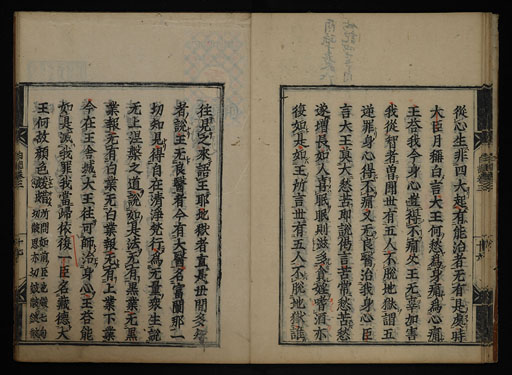 從心生非四大起有能治者无有是處時
大臣月稱白言大王何愁為身痛為心痛
王荅我今身心豈得不痛父王无辜加害
我從智者曽聞世有五人不脫地獄謂五
逆罪身心得不痛又无良醫治我身心臣
言大王莫大愁苦即說偈言若常愁苦愁
遂增長如人喜眠眠則滋多貪婬嗜酒亦
復如是如王所言世有五人不脫地獄誰
往見之來語王耶地獄者直是世間多智
者說王无良醫者今有大醫名富闌那一
切知見得自在清淨梵行為无量衆生說
无上涅槃之道說如是法无有黑業无黑
業報无有白業无白業報无有上業下業
今在王舍城大王往可師治身心王荅能
如是滅我罪我當歸依後一臣名藏德大
王何故顔色